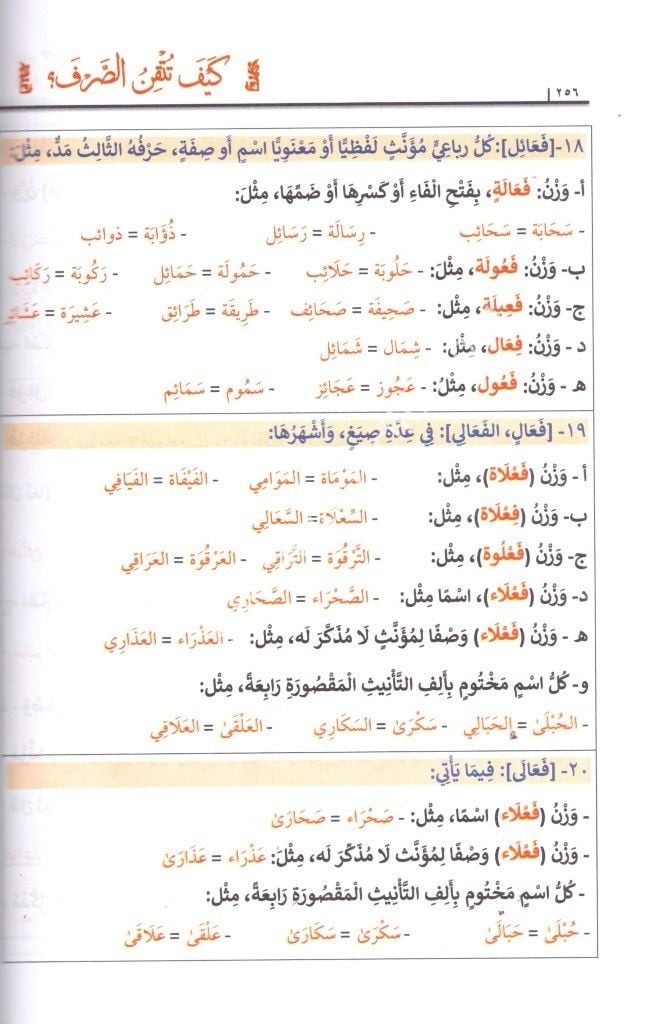 ٢٥٦
كَيْفَ تُتْقِنُ الصَّرْفَ؟
١٨- [فَعَائِل]: كُلُّ رباعِيٍّ مُؤَنَّثٍ لَفْظِيًّا أَوْ مَعْنَوِيًّا اسْمٍ أَو صِفَةٍ، حَرْفُهُ الثَّالِثُ مَدٌّ، مِثْلَ:
أ- وَزْنُ: فَعَالَةٍ، بِفَتْحِ الْفَاءِ أَوْ كَسْرِهَا أَوْ ضَمِّهَا، مِثْلَ:
- سَحَابَة = سَحَائِب - رِسَالَة = رَسَائِل - ذُؤَابَة = ذوائب
ب- وَزْنُ: فَعُولَة، مِثْلَ: - حَلُوبَة = حَلَائِب - حَمُولَة = حَمَائِل - رَكُوبَة = رَكَائِب
ج- وَزْنُ: فَعِيلَة، مِثْل: - صَحِيفَة = صَحَائِف - طَرِيقَة = طَرَائِق - عَشِيرَة = عَشَائِر
د- وَزْنُ: فِعَال، مِثْل: - شِمَال = شَمَائِل
هـ- وَزْنُ: فَعُول، مِثْلُ: - عَجُوز = عَجَائِز - سَمُوم = سَمَائِم
١٩- [فَعَالٍ، الفَعَالِي]: فِي عِدَّةِ صِيَغٍ، وَأَشْهَرُهَا:
أ- وَزْنُ (فَعْلَاة)، مِثْل: - المَوْمَاة = المَوَامِي - الفَيْفَاة = الفَيَافِي
ب- وَزْنُ (فِعْلَاة)، مِثْل: - السِّعْلَاة = السَّعَالِي
ج- وَزْنُ (فَعْلُوة)، مِثْل: - التَّرْقُوَة = التَّرَاقِي - العَرْقُوَة = العَرَاقِي
د- وَزْنُ (فَعْلَاء)، اسْمًا مِثْل: - الصَّحْرَاء = الصَّحَارِي
هـ- وَزْنُ (فَعْلَاء) وَصْفًا لِمُؤَنَّثٍ لَا مُذَكَّرَ له، مِثْل: - العَذْرَاء = العَذَارِي
و- كُلُّ اسْمٍ مَخْتُومٍ بِأَلِفِ التَّأْنِيثِ الْمَقْصُورَةِ رَابِعَةً، مِثْل:
- الحُبْلَىٰ = الحَبَالِي - سَكْرَىٰ = السَكَارِي - العَلْقَىٰ = العَلَاقِي
٢٠- [فَعَالَى]: فِيمَا يَأْتِي:
- وَزْنُ (فَعْلَاء) اسْمًا، مِثْل: - صَحْرَاء = صَحَارَىٰ
- وَزْنُ (فَعْلَاء) وَصْفًا لِمُؤَنَّث لَا مُذَكَّرَ له، مِثْلَ: عَذْرَاء = عَذَارَىٰ
- كُلُّ اسْمٍ مَخْتُومٍ بِأَلِفِ التَّأْنِيثِ الْمَقْصُورَةِ رَابِعَةً، مِثْل:
- حُبْلَىٰ = حَبَالَىٰ - سَكْرَىٰ = سَكَارَىٰ - عَلْقَىٰ = عَلَاقَىٰ